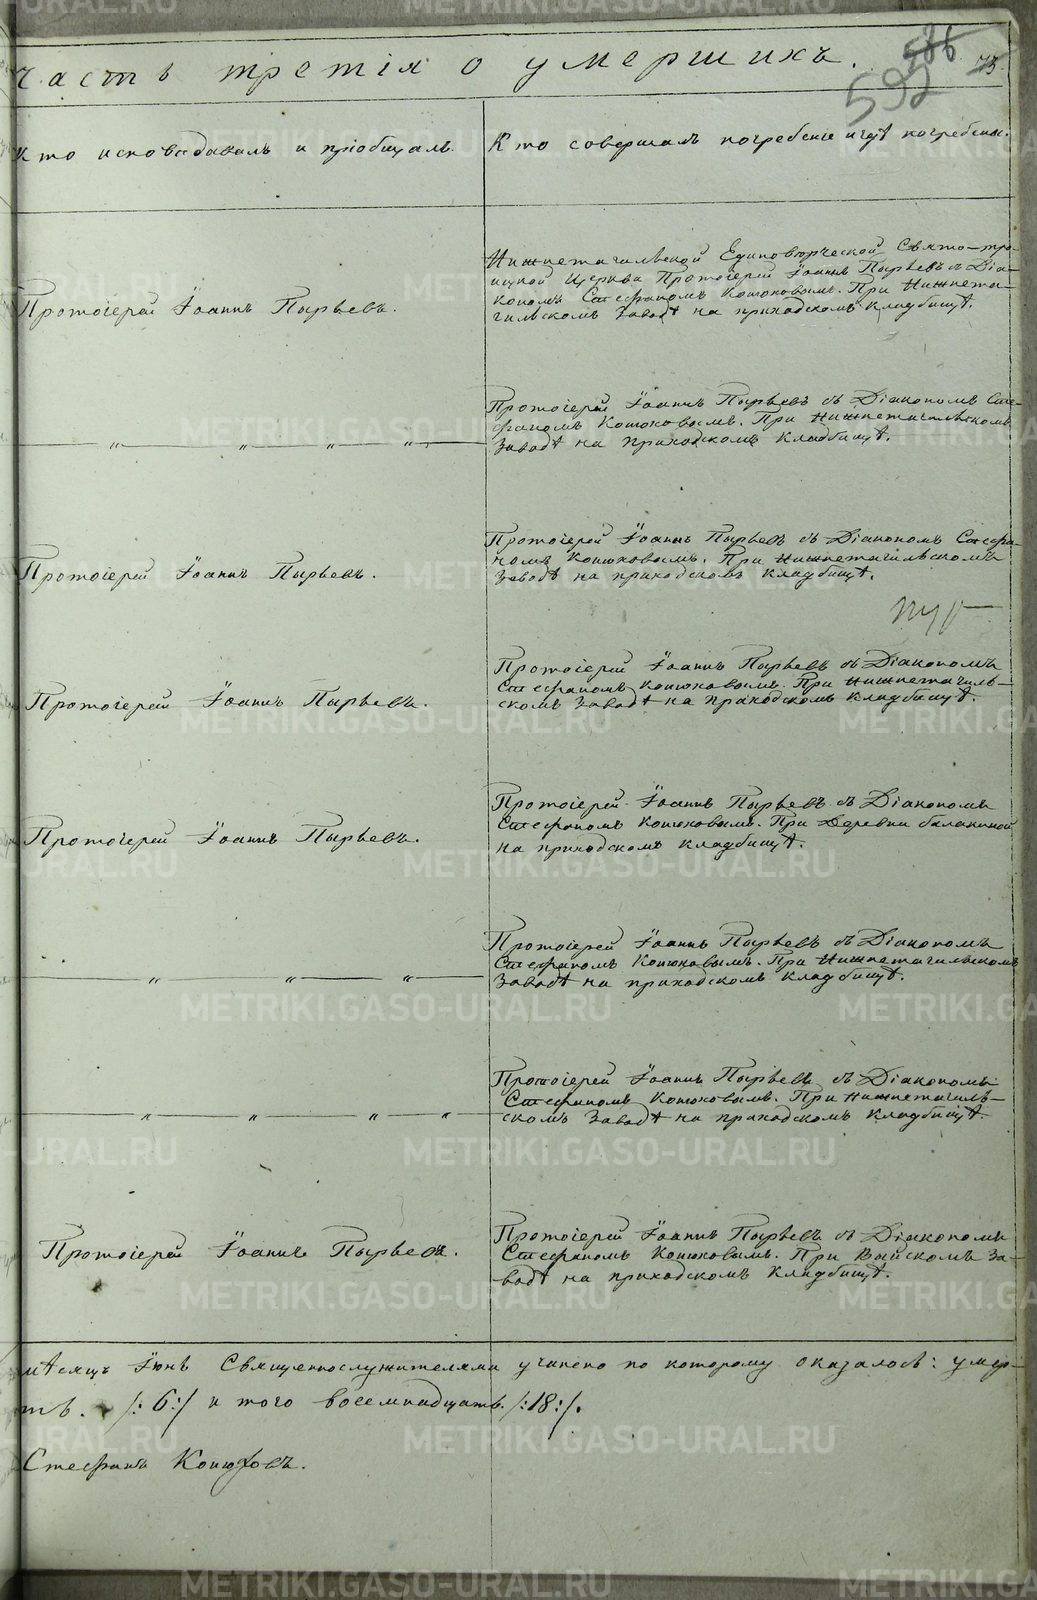 Часть третія о умершихъ.
586
592
73
Кто исповѣдавалъ и пріобщалъ.
Кто совершалъ погребеніе и гдѣ погребены.
Протоіерей Іоаннъ Пырьевъ.
Нижнетагильской Единовѣрческой Свято-тро-
ицкой Церкви Протоіерей Іоаннъ Пырьевъ съ Діа-
кономъ Стефаномъ Конюховымъ. При Нижнета-
гильскомъ Заводѣ на приходскомъ кладбищѣ.
" " " "
Протоіерей Іоаннъ Пырьевъ съ Діакономъ Сте-
фаномъ Конюховымъ. При Нижнетагильскомъ
Заводѣ на приходскомъ кладбищѣ.
Протоіерей Іоаннъ Пырьевъ.
Протоіерей Іоаннъ Пырьевъ съ Діакономъ Стефа-
номъ Конюховымъ. При Нижнетагильскомъ
Заводѣ на приходскомъ кладбищѣ.
Протоіерей Іоаннъ Пырьевъ.
Протоіерей Іоаннъ Пырьевъ съ Діакономъ
Стефаномъ Конюховымъ. При Нижнетагиль-
скомъ Заводѣ на приходскомъ кладбищѣ.
Протоіерей Іоаннъ Пырьевъ.
Протоіерей Іоаннъ Пырьевъ съ Діакономъ
Стефаномъ Конюховымъ. При Деревни балакиной
на приходскомъ кладбищѣ.
" " "
Протоіерей Іоаннъ Пырьевъ съ Діакономъ
Стефаномъ Конюховымъ. При Нижнетагильскомъ
Заводѣ на приходскомъ кладбищѣ.
" " " "
Протоіерей Іоаннъ Пырьевъ съ Діакономъ
Стефаномъ Конюховымъ. При Нижнетагиль-
скомъ Заводѣ на приходскомъ кладбищѣ.
Протоіерей Іоаннъ Пырьевъ.
Протоіерей Іоаннъ Пырьевъ съ Діакономъ
Стефаномъ Конюховымъ. При Выйскомъ За-
водѣ на приходскомъ кладбищѣ.
мѣсяцъ Іюнь Священнослужителями учинено по которому оказалось: умер-
ть. /:6:/ и того восемнадцать. /:18:/.
Стефанъ Конюховъ.
METRIKI.GASO-URAL.RU